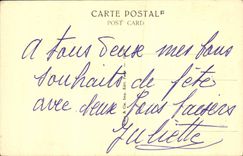 CARTE POSTALE
POST CARD
A tous deux mes bons
souhaits de fête
avec deux bons baisers
Juliette